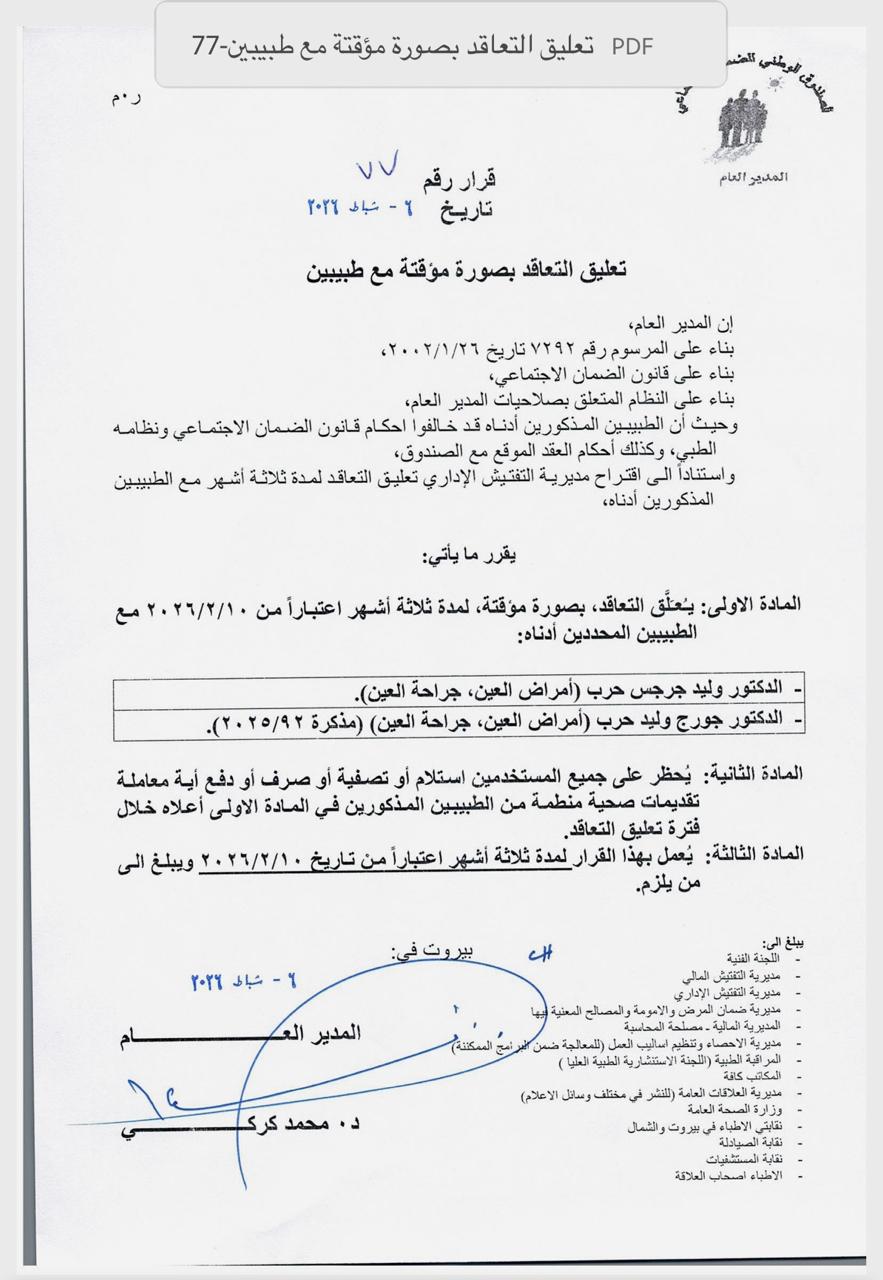 PDF تعليق التعاقد بصورة مؤقتة مع طبيبين-77
الصندوق الوطني للضمان
المدير العام
ر٠م
قرار رقم ٧٧
تاريخ ٦ - شباط ٢٠٢٦
تعليق التعاقد بصورة مؤقتة مع طبيبين
إن المدير العام،
بناء على المرسوم رقم ٧٢٩٢ تاريخ ٢٠٠٢/١/٢٦،
بناء على قانون الضمان الاجتماعي،
بناء على النظام المتعلق بصلاحيات المدير العام،
وحيث أن الطبيبين المذكورين أدناه قد خالفوا احكام قانون الضمان الاجتماعي ونظامه
الطبي، وكذلك أحكام العقد الموقع مع الصندوق،
واستناداً الى اقتراح مديرية التفتيش الإداري تعليق التعاقد لمدة ثلاثة أشهر مع الطبيبين
المذكورين أدناه،
يقرر ما يأتي:
المادة الاولى: يُعَلَّق التعاقد، بصورة مؤقتة، لمدة ثلاثة أشهر اعتباراً من ٢٠٢٦/٢/١٠ مع
الطبيبين المحددين أدناه:
- الدكتور وليد جرجس حرب (أمراض العين، جراحة العين).
- الدكتور جورج وليد حرب (أمراض العين، جراحة العين) (مذكرة ٢٠٢٥/٩٢).
المادة الثانية: يُحظر على جميع المستخدمين استلام أو تصفية أو صرف أو دفع أية معاملة
تقديمات صحية منظمة من الطبيبين المذكورين في المادة الاولى أعلاه خلال
فترة تعليق التعاقد.
المادة الثالثة: يُعمل بهذا القرار لمدة ثلاثة أشهر اعتباراً من تاريخ ٢٠٢٦/٢/١٠ ويبلغ الى
من يلزم.
بيروت في:
٦ - شباط ٢٠٢٦
المدير العـــــــــــــام
د٠ محمد كركـــــــــــي
يبلغ الى:
- اللجنة الفنية
- مديرية التفتيش المالي
- مديرية التفتيش الإداري
- مديرية ضمان المرض والامومة والمصالح المعنية فيها
- المديرية المالية - مصلحة المحاسبة
- مديرية الاحصاء وتنظيم اساليب العمل (للمعالجة ضمن البرامج الممكننة)
- المراقبة الطبية (اللجنة الاستشارية الطبية العليا )
- المكاتب كافة
- مديرية العلاقات العامة (للنشر في مختلف وسائل الاعلام)
- وزارة الصحة العامة
- نقابتي الاطباء في بيروت والشمال
- نقابة الصيادلة
- نقابة المستشفيات
- الاطباء اصحاب العلاقة